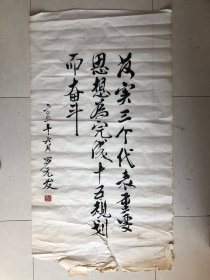 落实三个代表重要
思想为完成十五规划
而奋斗
二〇〇一年六月 罗元发